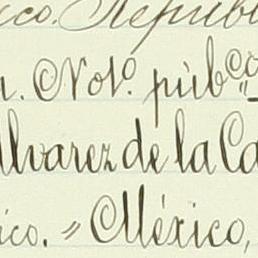 ico. Repúbl
a. Not.º púb.co
Alvarez de la Ca
ico. = México,